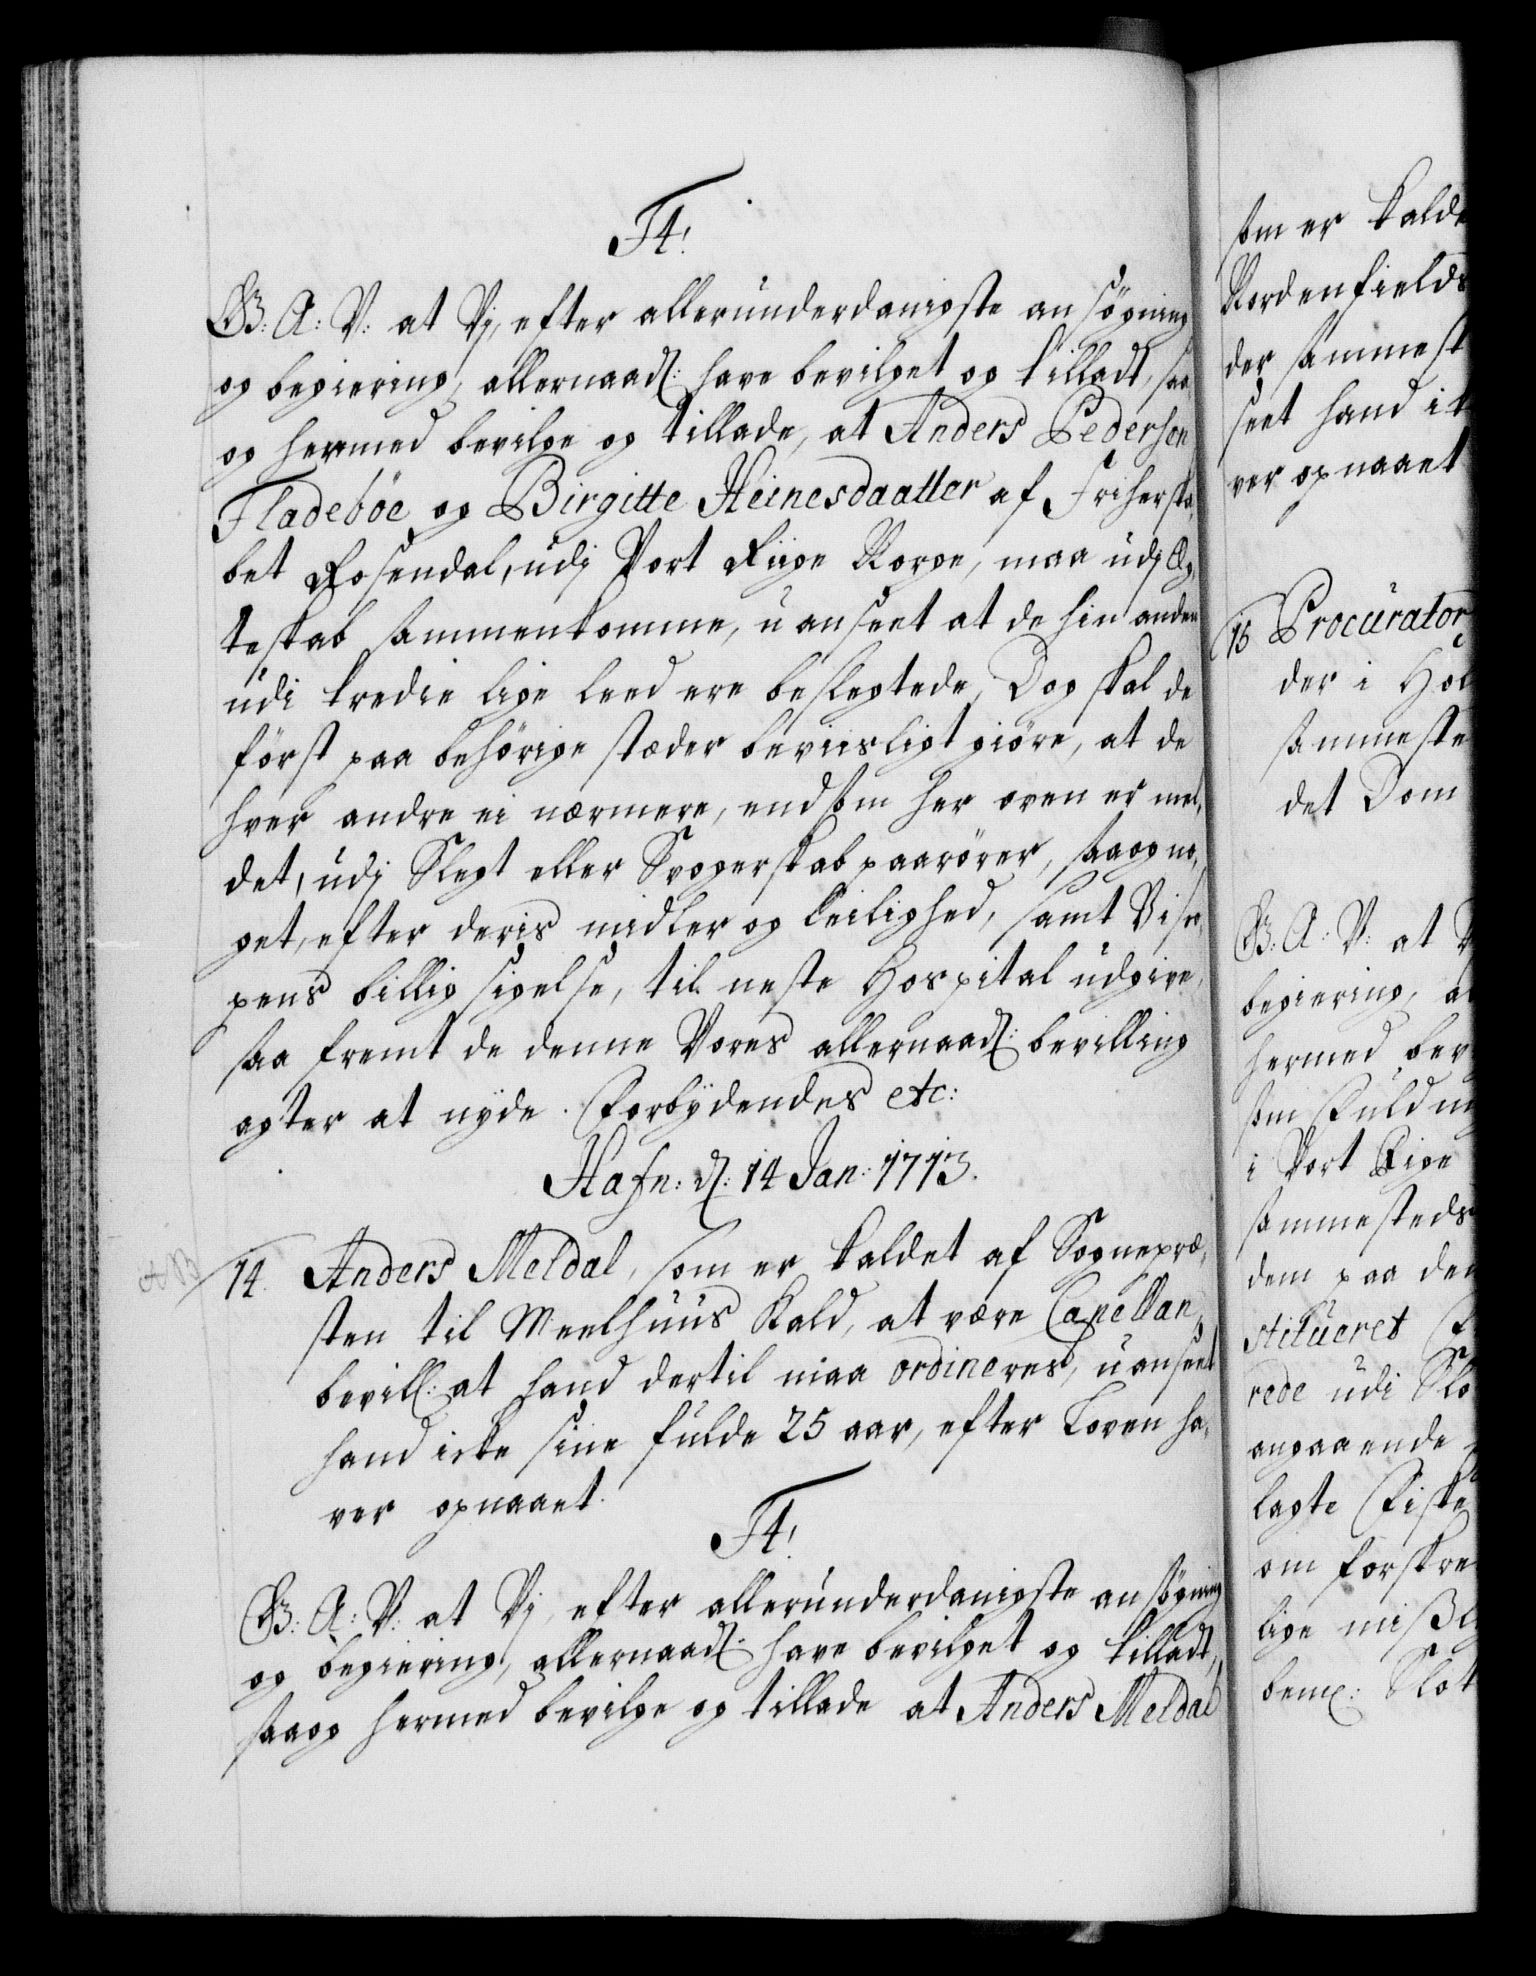 F4!
G: A: V: at Vj, efter allerunderdanigste ansøgning
og begiering, allernaad: have bevilget og tilladt, saa
og hermed bevilge og tillade, at Anders Pedersen
Fladebøe og Birgitte Heinesdaatter af Friherska,
bet Rosendal, udj Vort Riige Norge, maa udj Æg,
teskab sammenkomme, uanseet at de hin anden
udi tredie lige leed ere beslegtede, Dog skal de
först paa behörige stæder beviisligt giöre, at de
hver andre ei nærmere, end som her oven er mel,
det, udj Slegt eller Svogerskab paarörer, saa og no,
get, efter deris midler og leilighed, samt Bisco,
pens billig sigelse, til neste Hospital udgive,
saa fremt de denne Vores allernaad: bevilling
agter at nyde. Forbydendes etc:
Hafn: d: 14 Jan: 1713.
14. Anders Meldal, som er kaldet af Sognepræ,
sten til Meelhuus Kald, at være Capellan,
bevill: at hand dertil maa ordineres, uanseet
hand icke sine fulde 25 aar, efter Loven ha,
ver opnaaet.
F4!
G: A: V: at Vj, efter allerunderdanigste ansøgning
og begiering, allernaad: have bevilget og tilladt,
saa og hermed bevilge og tillade at Anders Meldal
som er kald
Nordenfields
der sammest
seet hand i
ver opnaaet
15 Procurator
der i Hol
sammeste
det Dom
G: A: V: at V
begiering, a
hermed bev
som
i Vort Rige
sammesteds
dem paa den
stitueret
rede udi Slo
angaaende
lagte Fiske
om forskre
lige miß
bem: Slot